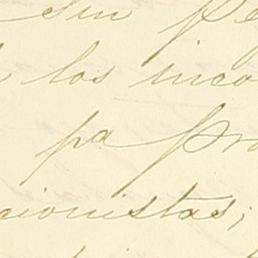 sin pe
los inco
pa pro
cionistas;